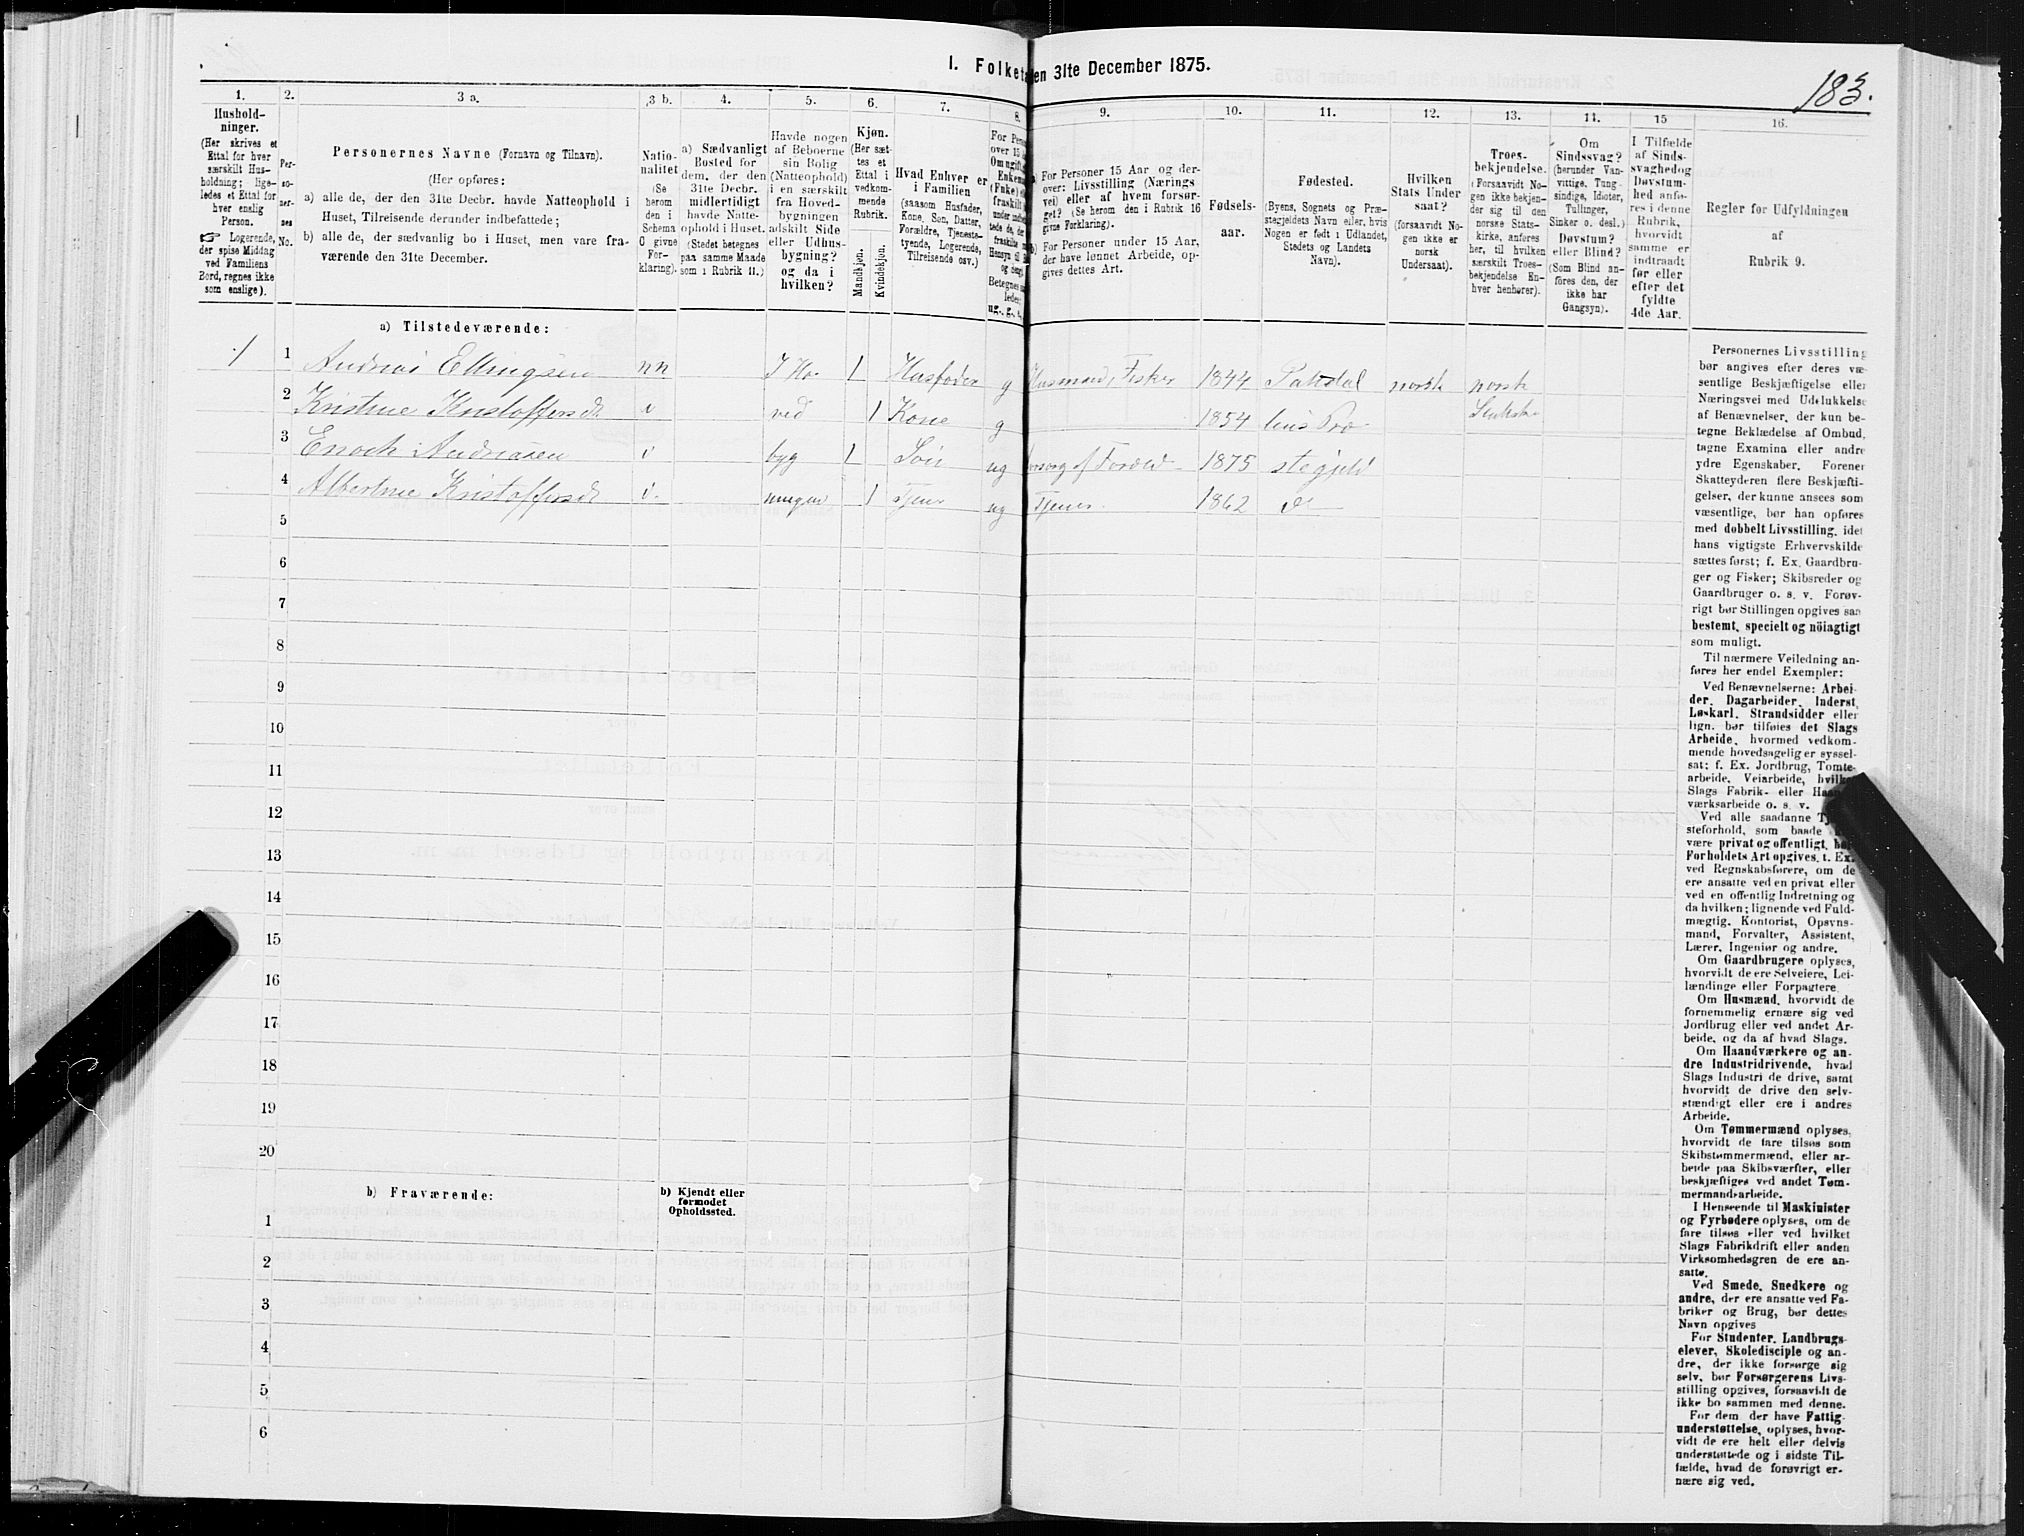 I. Folketa
en 31te December 1875.
183.
1.
Hushold-
ninger.
(Her skrives et
Ettal for hver
særskilt Hus-
holdning; lige-
ledes et Ettal for
hver enslig
Person.
☞ Logerende,
der spise Middag
ved Familiens
Bord, regnes ikke
som enslige).
2.
Per-
so-
ner-
nes
No.
3 a.
Personernes Navne (Fornavn og Tilnavn).
(Her opføres:
a) alle de, der den 31te Decbr. havde Natteophold i
Huset, Tilreisende derunder indbefattede;
b) alle de, der sædvanlig bo i Huset, men vare fra-
værende den 31te December.
3 b.
Natio-
nalitet
(Se
herom
den i
Schema
O givne
For-
klaring).
4.
a) Sædvanligt
Bosted for
dem, der den
31te Decbr.
midlertidigt
havde Natte-
ophold i Huset.
(Stedet betegnes
paa samme Maade
som i Rubrik 11.)
5.
Havde nogen
af Beboerne
sin Bolig
(Natteophold)
i en særskilt
fra Hoved-
bygningen
adskilt Side
eller Udhus-
bygning?
og da i
hvilken?
6.
Kjøn.
(Her sæt-
tes et
Ettal i
vedkom-
mende
Rubrik.
Mandkjøn.
Kvindekjøn.
7.
Hvad Enhver er
i Familien
(saasom Husfader,
Kone, Søn, Datter,
Forældre, Tjeneste-
tyende, Logerende,
Tilreisende osv.)
8.
For Pers
over 15
Om ugift
Enkema
(Enke)
fraskilt
9.
a) For Personer 15 Aar og der-
over: Livsstilling (Nærings
vei) eller af hvem forsør-
get? (Se herom den i Rubrik 16
givne Forklaring).
b) For Personer under 15 Aar,
der have lønnet Arbeide, op-
gives dettes Art.
10.
Fødsels-
aar.
11.
Fødested.
(Byens, Sognets og Præ-
stegjeldets Navn eller, hvis
Nogen er født i Udlandet,
Stedets og Landets
Navn).
12.
Hvilken
Stats Under
saat?
(forsaavidt No-
gen ikke er
norsk
Undersaat).
13.
Troes-
bekjendelse.
(Forsaavidt No-
gen ikke bekjen-
der sig til den
norske Stats-
kirke, anføres
her, til hvilken
særskilt Troes-
bekjendelse En-
hver henhører).
14.
Om
Sindssvag?
(herunder Van-
vittige, Tung-
sindige, Idioter,
Tullinger,
Sinker o. desl.)
Døvstum?
eller Blind?
(Som Blind an-
føres den, der
ikke har
Gangsyn).
15
I Tilfælde
af Sinds-
svaghed og
Døvstum-
hed anfø-
res i denne
Rubrik,
hvorvidt
samme er
indtraadt
før eller
efter det
fyldte
4de Aar.
16.
Regler for Udfyldningen
af
Rubrik 9.
a) Tilstedeværende:
1 1 Andreas Ellingsen nn I Ho- 1 Husfader g Husmand, Fisker 1844 norsk norsk
2 Kristine Kristoffersdt ved 1 Kone g 1854
3 Enoch Andreasen byg 1 Søn ug 1875 stegjeld
4 Albertine Kristoffersdt 1 Tjener ug Tjener 1862 do
5
6
7
8
9
10
11
12
13
14
15
16
17
18
19
20
b) Fraværende:
b) Kjendt eller
formodet
Opholdssted.
1
2
3
4
5
6
Personernes Livsstilling
bør angives efter deres væ-
sentlige Beskjæftigelse eller
Næringsvei med Udelukkelse
af Benævnelser, der kun be-
tegne Beklædelse af Ombud,
tagne Examina eller andre
ydre Egenskaber. Forener
Skatteyderen flere Beskjæfti-
gelser, der kunne ansees som
væsentlige, bør han opføres
med dobbelt Livsstilling, idet
hans vigtigste Erhvervskilde
sættes først; f. Ex. Gaardbru-
ger og Fisker; Skibsreder og
Gaardbruger o. s. v. Forøv-
rigt bør Stillingen opgives saa
bestemt, specielt og nøiagtigt
som muligt.
Til nærmere Veiledning an-
føres her endel Exempler:
Ved Benævnelserne: Arbei-
der, Dagarbeider, Inderst,
Løskarl, Strandsidder eller
lign. bør tilføies det Slags
Arbeide, hvormed vedkom-
mende hovedsagelig er syssel-
sat; f. Ex. Jordbrug, Tomte-
arbeide, Veiarbeide, hvilket
Slags Fabrik- eller Haand-
værksarbeide o. s. v.
Ved alle saadanne Tje-
steforhold, som baade
være privat og offentligt, bør
Forholdets Art opgives, t. Ex.
ved Regnskabsførere, om de
ere ansatte ved en privat eller
ved en offentlig Indretning og
da hvilken; lignende ved Fuld-
mægtig, Kontorist, Opsyns-
mand, Forvalter, Assistent,
Lærer, Ingeniør og andre.
Om Gaardbrugere oplyses,
hvorvidt de ere Selveiere, Lei-
lændinge eller Forpagtere.
Om Husmænd, hvorvidt de
fornemmelig ernære sig ved
Jordbrug eller ved andet Ar-
beide, og da af hvad Slags.
Om Haandværkere og an-
dre Industridrivende, hvad
Slags Industri de drive, samt
hvorvidt de drive den selv-
stændigt eller ere i andres
Arbeide.
Om Tømmermænd oplyses,
hvorvidt de fare tilsøs som
Skibstømmermænd, eller ar-
beide paa Skibsværfter, eller
beskjæftiges ved andet Tøm-
mermandsarbeide.
I Henseende til Maskinister
og Fyrbødere oplyses, om de
fare tilsøs eller ved hvilket
Slags Fabrikdrift eller anden
Virksomhedsgren de ere an-
satte.
Ved Smede, Snedkere og
andre, der ere ansatte ved Fa-
briker og Brug, bør dettes
Navn opgives
For Studenter, Landbrugs-
elever, Skoledisciple og an-
dre, der ikke forsørge sig
selv, bør Forsørgerens Livs-
stilling opgives, forsaavidt de
ikke bo sammen med denne.
For dem der have Fattig-
understøttelse, oplyses, hvor-
vidt de ere helt eller delvis
understøttede og i sidste Til-
fælde, hvad de forøvrigt er-
nære sig ved.